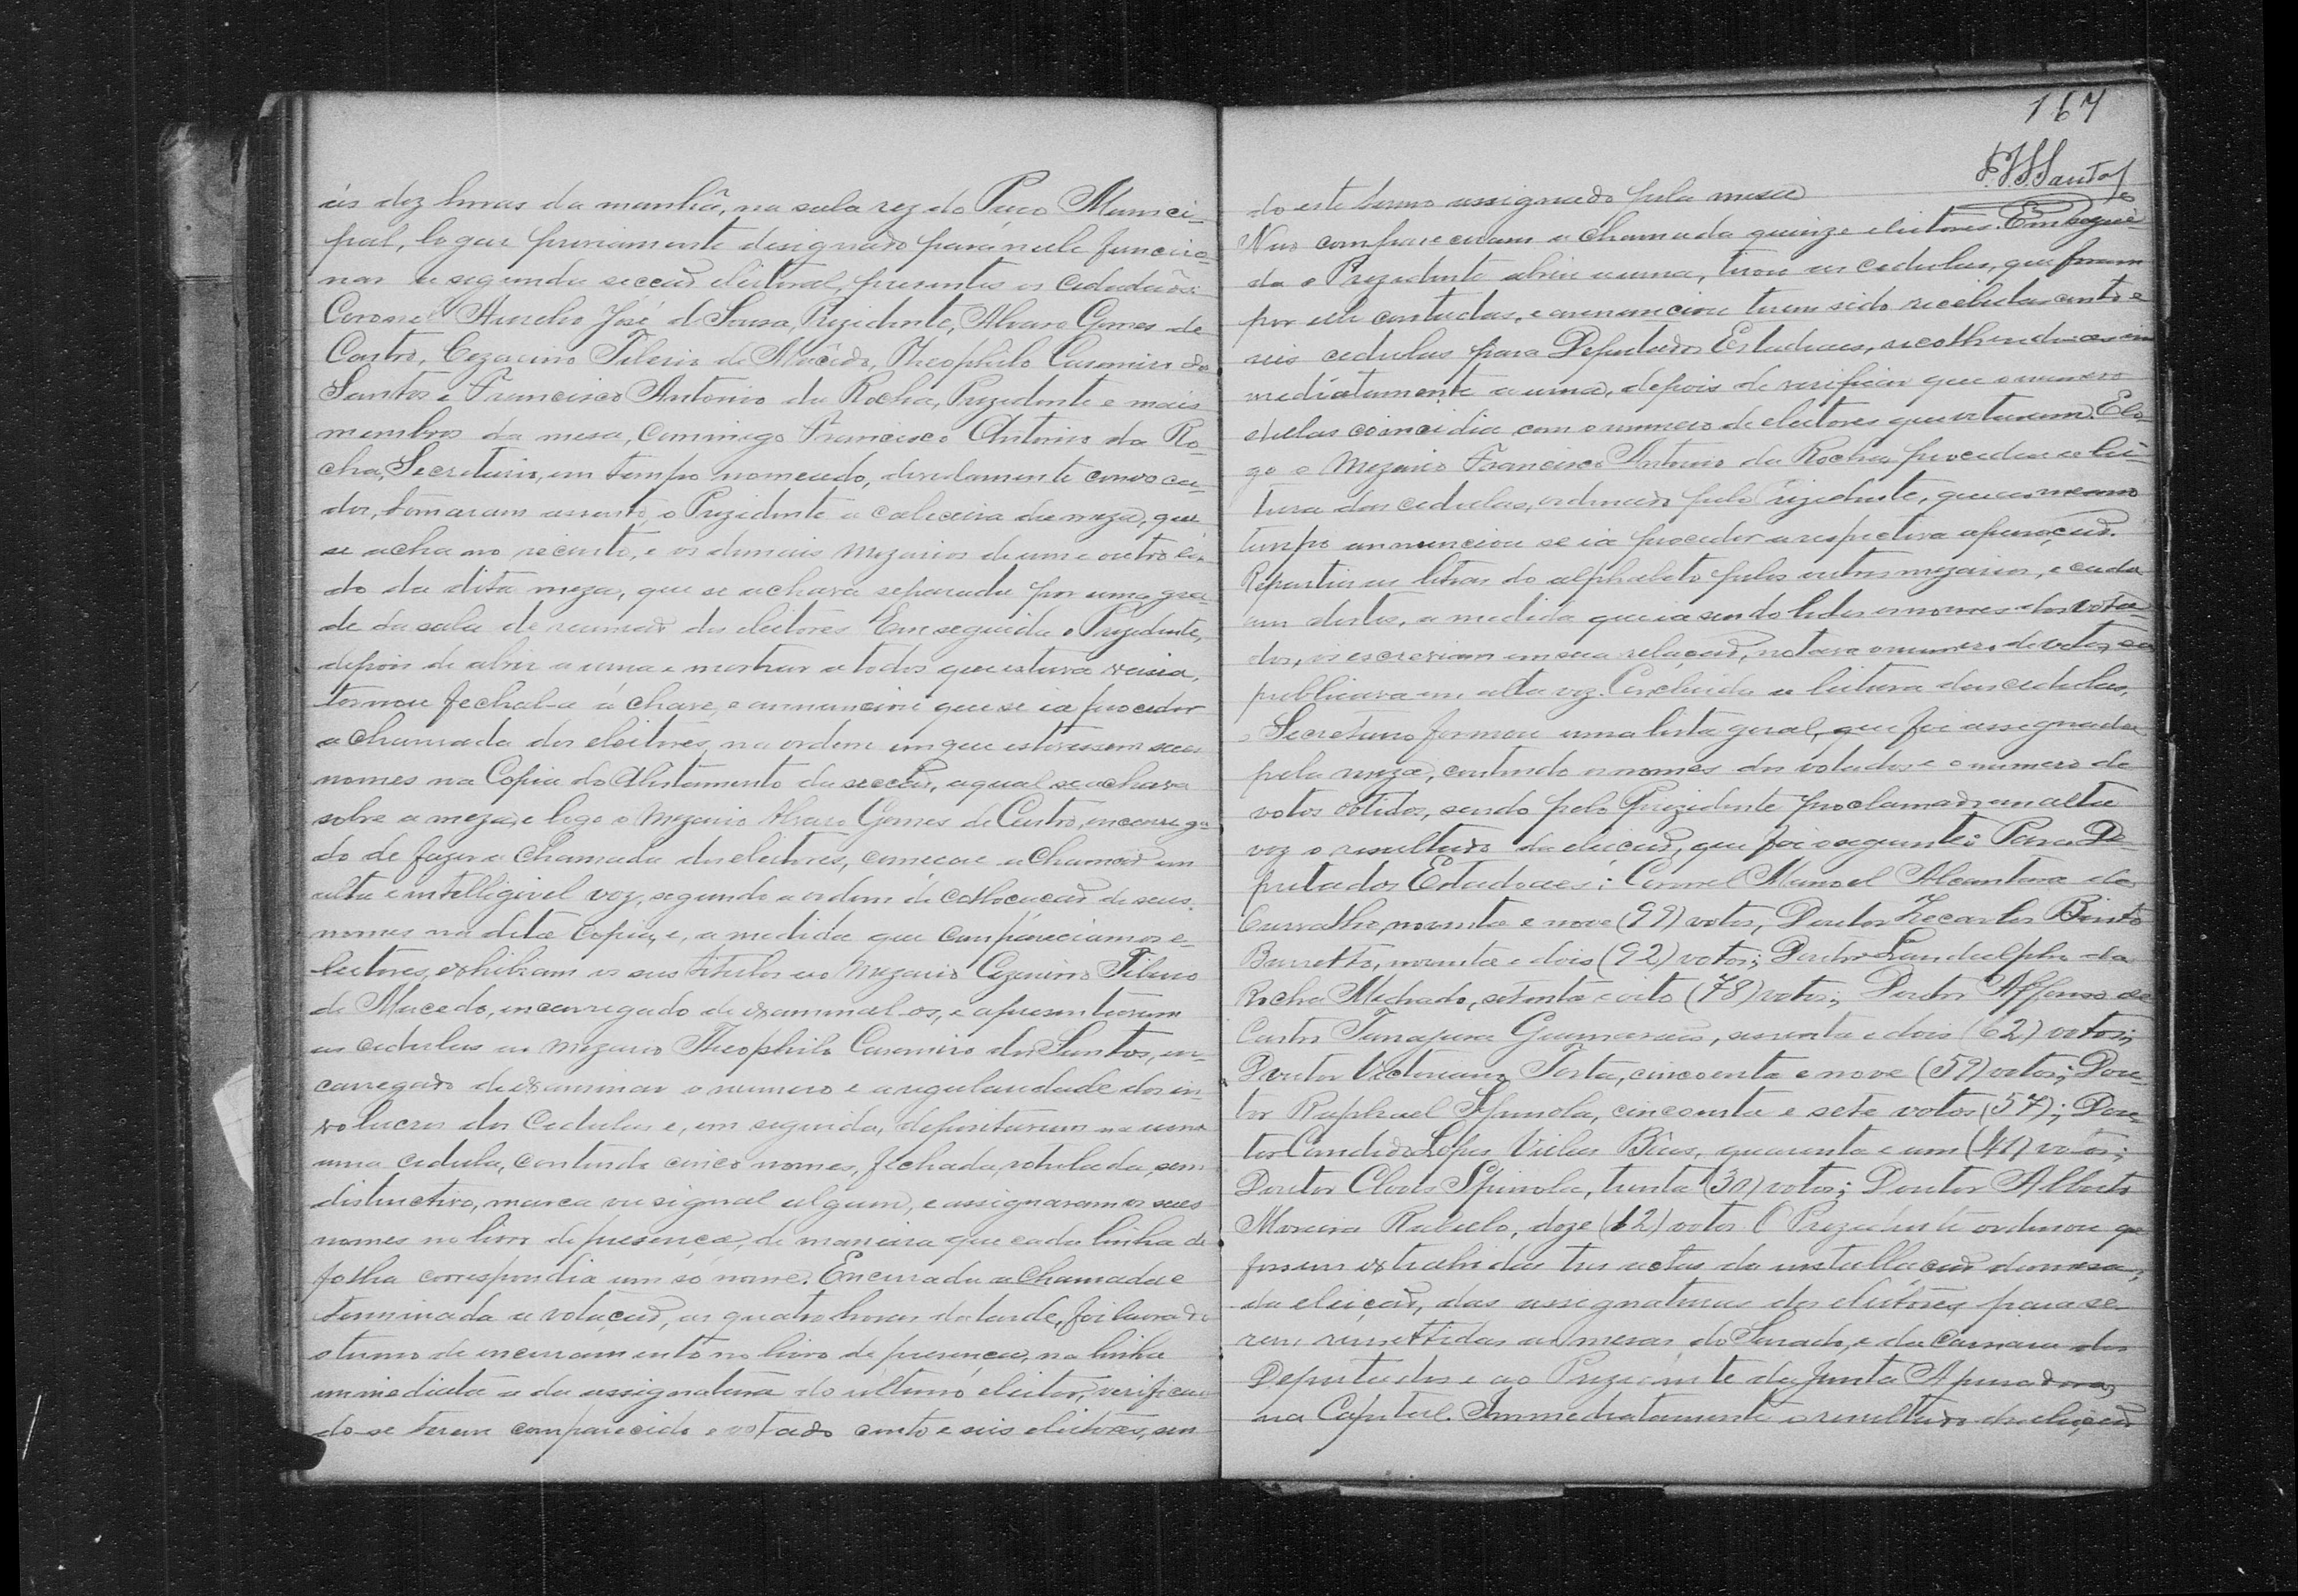 ás dez horas da manhã, na sala rez do Paço Munici-
pal, logar previamente designado para nelle funccio-
nar a segunda secção eleitoral, presentes os cidadãos
Coronel Aurelio José de Sousa, Prezidente, Alvaro Gomes de
Castro, Cezarino Tiberio de Macêdo, Theophilo Casemiro dos
Santos e Francisco Antonio da Rocha, Prezidente e mais
membros da mesa, commigo Francisco Antonio da Ro-
cha, Secretario, em tempo nomeado, devidamente convoca-
dos, tomaram assento, o Prezidente a cabeceira da meza, que
se acha no recinto, e os demais Mezarios de um e outro la-
do da dita meza, que se achava separada por uma gra-
de da sala de reunião dos eleitores. Em seguida o Prezidente,
depois de abrir a urna e mostrar a todos que estava vasia,
tornou fechal-a á chave, e annunciou que se ia proceder
a chamada dos eleitores, na ordem em que estivessem seus
nomes na Copia do Alistamento da secção, a qual se achava
sobre a meza, e logo o Mezario Alvaro Gomes de Castro, encarrega-
do de fazer a chamada dos eleitores, começou a chamar em
alta e intelligivel voz, segundo a ordem de collocação de seus
nomes na dita Copia, e, a medida que compareciam os e-
leitores, exhibiam os seus titulos ao Mezario Cezarino Tiberio
de Macedo, encarregado de examinal-os, e apresentavam
as cedulas ao Mezario Theophilo Casemiro dos Santos, en-
carregado de examinar o numero e a regularidade dos in-
volucros das Cedulas e, em seguida, depositavam na urna
uma cedula, contendo cinco nomes, fechada, rotulada, sem
distinctivo, marca ou signal algum, e assignaram os seus
nomes no livro de presença, de maneira que cada linha de
folha correspondia um só nome. Encerrada a Chamada e
terminada a votação, as quatro horas da tarde, foi lavrado
o termo de encerramento no livro de presença, na linha
immediata a da assignatura do ultimo eleitor, verifican
do-se terem comparecido e votado cento e seis eleitores, sen
167
F.J.S.Santos
do este termo assignado pela mesa
Não compareceram a chamada quinze eleitores. Em segui-
da o Prezidente abriu a urna, tirou as cedulas, que foram
por elle contadas, e annunciou terem sido recebidas cento e
seis cedulas para Deputados Estadoaes, recolhendo-as im
mediatamente a urna, depois de verificar que o numero
dellas coincidia com o numero de eleitores que votaram. E lo-
go o Mezario Francisco Antonio da Rocha procedeu a lei-
tura das cedulas, ordenado pelo Prezidente, que ao mesmo
tempo annunciou se ia proceder a respectiva apuração.
Repartiu as letras do alphabeto pelos outros mezarios, e cada
um destes, a medida que ia sendo lidos os nomes dos vota-
dos, os escreviam em sua relação, notava o numero de votos, e o
publicava em alta voz. Concluida a leitura das cedulas,
o Secretario formou uma lista geral, que foi assignada
pela meza, contendo os nomes dos votados e o numero de
votos obtidos, sendo pelo Prezidente proclamado em alta
voz o resultado da eleição, que foi o seguinte: Para De-
putados Estadoaes: Coronel Manoel Alcantara de
Carvalho, noventa e nove (99) votos; Doutor Bento
Barretto, noventa e dois (92) votos; Doutor Landulpho da
Rocha Machado, setenta e oito (78) votos; Doutor Affonso de
Castro Guimarães, sessenta e dois (62) votos;
Doutor Victoriano Tosta, cincoenta e nove (59) votos; Dou-
tor Raphael Spinola, cincoenta e sete votos (57); Dou-
tor Candido Lopes Villas Bôas, quarenta e um (41) votos;
Doutor Clovis Spinola, trinta (30) votos; Doutor Alberto
Moreira Rabello, doze (12) votos. O Prezidente ordenou que
fossem extrahidas tres actas da installação da mesa,
da eleição, das assignaturas dos eleitores para se-
rem remettidas as mesas do Senado, e da Camara dos
Deputados e ao Prezidente da Junta Apuradora,
na Capital. Immediatamente o resultado da eleição